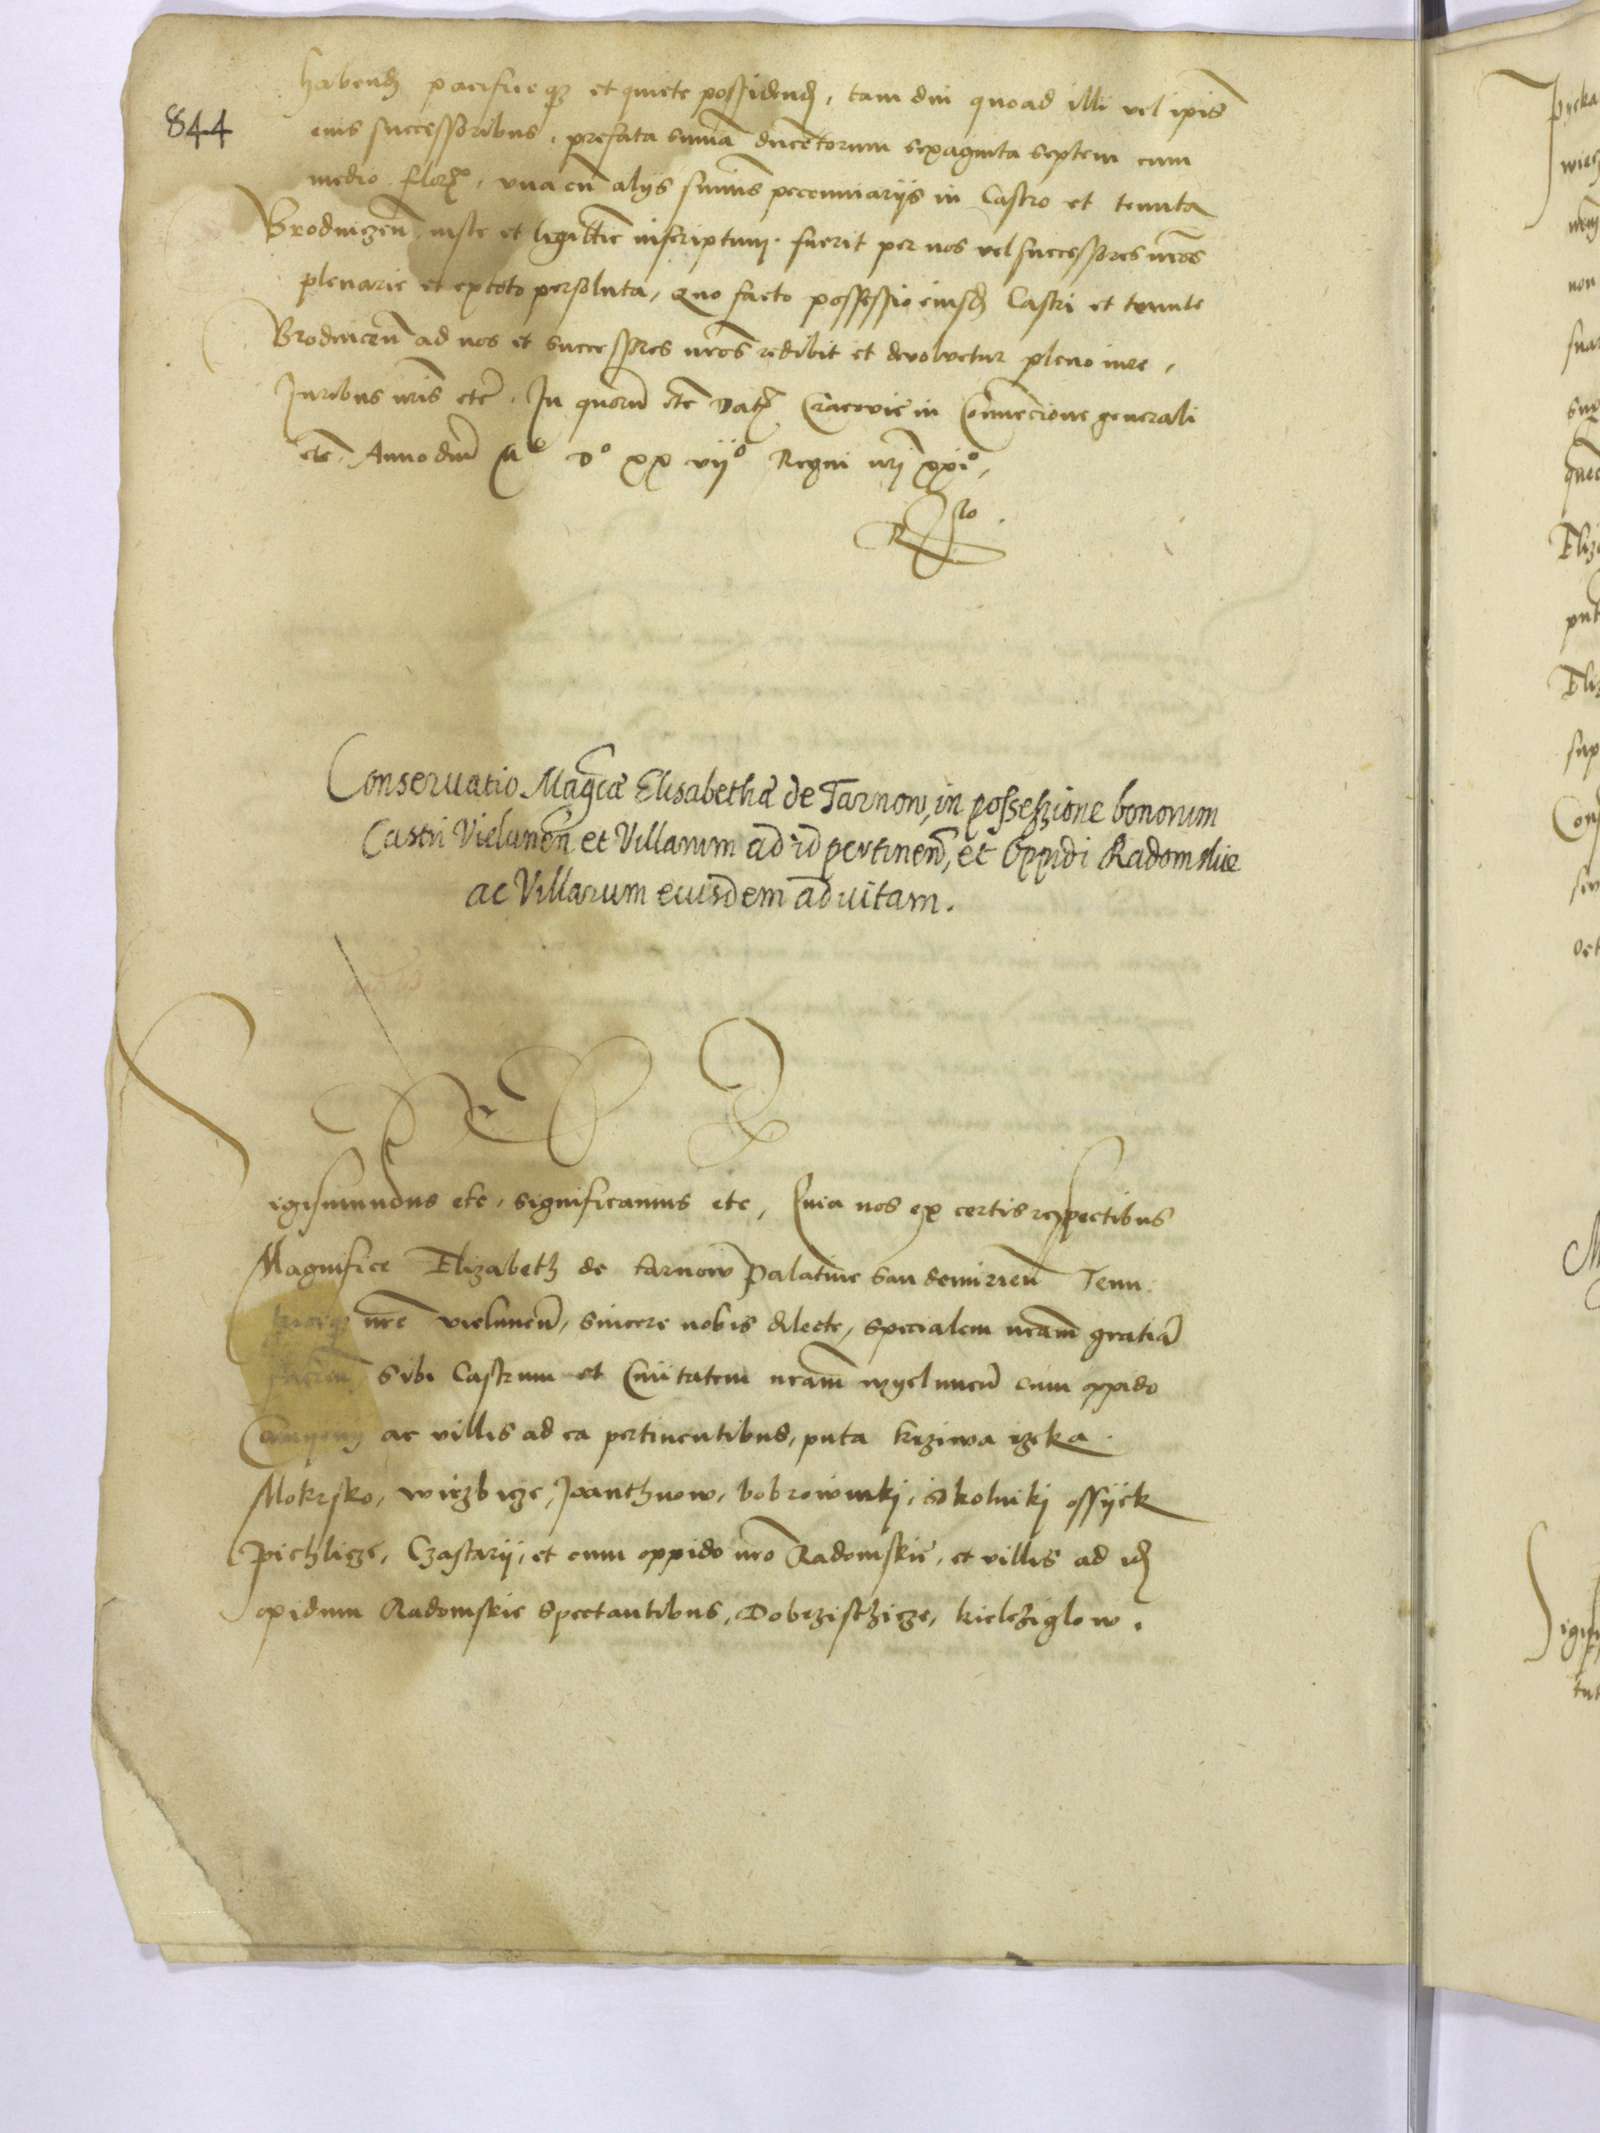 844
habend pacifice q3 et quiete possidend, tam diu quoad illi vel ipīs
eius successoribus, prefata sumā ducentorum sexaginta septem cum
medio floꝝ, vna cū alijs sumīs pecunnarijs in Castro et tenuta
Brodniczeñ iuste et legittīe inscriptum fuerit per nos vel successores nrōs
plenarie et ex toto persoluta, Quo facto possessio eiusd Castri et tenute
Brodniceñ ad nos et successores nrōs redibit et devolvetur pleno iure,
Iuribus nrīs etc̄. In quorū etc̄ Datꝫ Cracovie in Conuēcione generali
etc̄ Anno dnī Mo Do xx vijo Regni nrī xxio,
Conseruatio Mag̃cæ Elisabethæ de Tarnow, in possessione bonorum
Castri Vielunen̄ et Villarum ad id pertinen̄, et Oppidi Radomskie
ac Villarum eiusdem ad vitam.
igismundus etc, significamus etc, Quia nos ex certis respectibus
Magnifice Elizabeth de tarnow Palatine Sandomirieñ Tenu
nrē vieluneñ, sincere nobis dilecte, specialem nrām gratiā
sibi Castrum et Ciuitatem nrām wyeluneñ cum oppido
ac villis ad ea pertinentibus, puta krziwa rzeka
Mokrsko, wierzbicze, Joanthnow, bobrowniki, Skolniki ossyek
Pichlicze, Czastarij, et cum oppido nrō Radomskie, et villis ad id
opidum Radomskie Spectantibus, Dobrzischicze, kielcziglow.